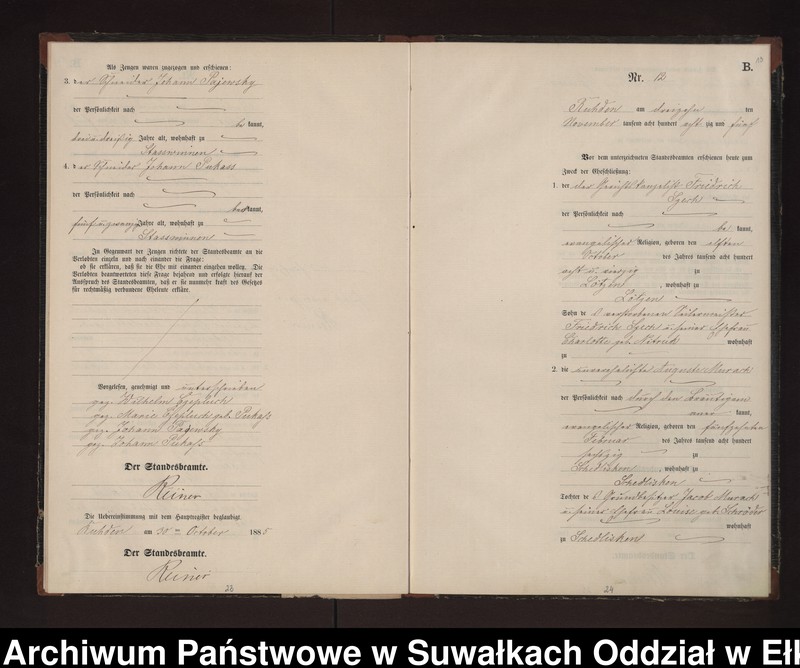 Als Zeugen waren zugezogen und erschienen:
3. der Schneider Johann Pajewsky
der Persönlichkeit nach
be kannt,
Jahre alt, wohnhaft zu
Stasswinnen
4. der Schneider Johann Pukass
der Persönlichkeit nach
be kannt,
Jahre alt, wohnhaft zu
Stasswinnen
In Gegenwart der Zeugen richtete der Standesbeamte an die
Verlobten einzeln und nach einander die Frage:
ob sie erklären, daß sie die Ehe mit einander eingehen wollen. Die
Verlobten beantworteten diese Frage bejahend und erfolgte hierauf der
Ausspruch des Standesbeamten, daß er sie nunmehr kraft des Gesetzes
für rechtmäßig verbundene Eheleute erkläre.
Vorgelesen, genehmigt und unterschrieben
gez. Wilhelm
gez. Marie geb. Pukaß
gez. Johann Pajewsky
gez. Johann Pukaß
Der Standesbeamte.
Reiner
Die Uebereinstimmung mit dem Hauptregister beglaubigt.
Ruhden am 30 ten October 1885
Der Standesbeamte.
Reiner
23
B.
Nr. 12
Ruhden am dreizehn ten
November tausend acht hundert acht zig und fünf
Vor dem unterzeichneten Standesbeamten erschienen heute zum
Zweck der Eheschließung:
1. der der Gerichtskanzelist Friedrich
der Persönlichkeit nach
be kannt,
evangelischer Religion, geboren den elften
October des Jahres tausend acht hundert
zu
Lötzen , wohnhaft zu
Lötzen
Sohn de s verstorbenen
Friedrich und seiner Ehefrau
Charlotte geb. wohnhaft
zu
2. die unverehelichte Auguste Murach
der Persönlichkeit nach durch den Bräutigam
aner kannt,
evangelischer Religion, geboren den fünfzehnten
Februar des Jahres tausend acht hundert
sechzig zu
Schedlisken , wohnhaft zu
Schedlisken
Tochter de s Grundbesitzer Jacob Murach
und seiner Ehefrau Louise geb. Schröder
wohnhaft
zu Schedlisken
24
Archiwum Państwowe w Suwałkach Oddział w Eł